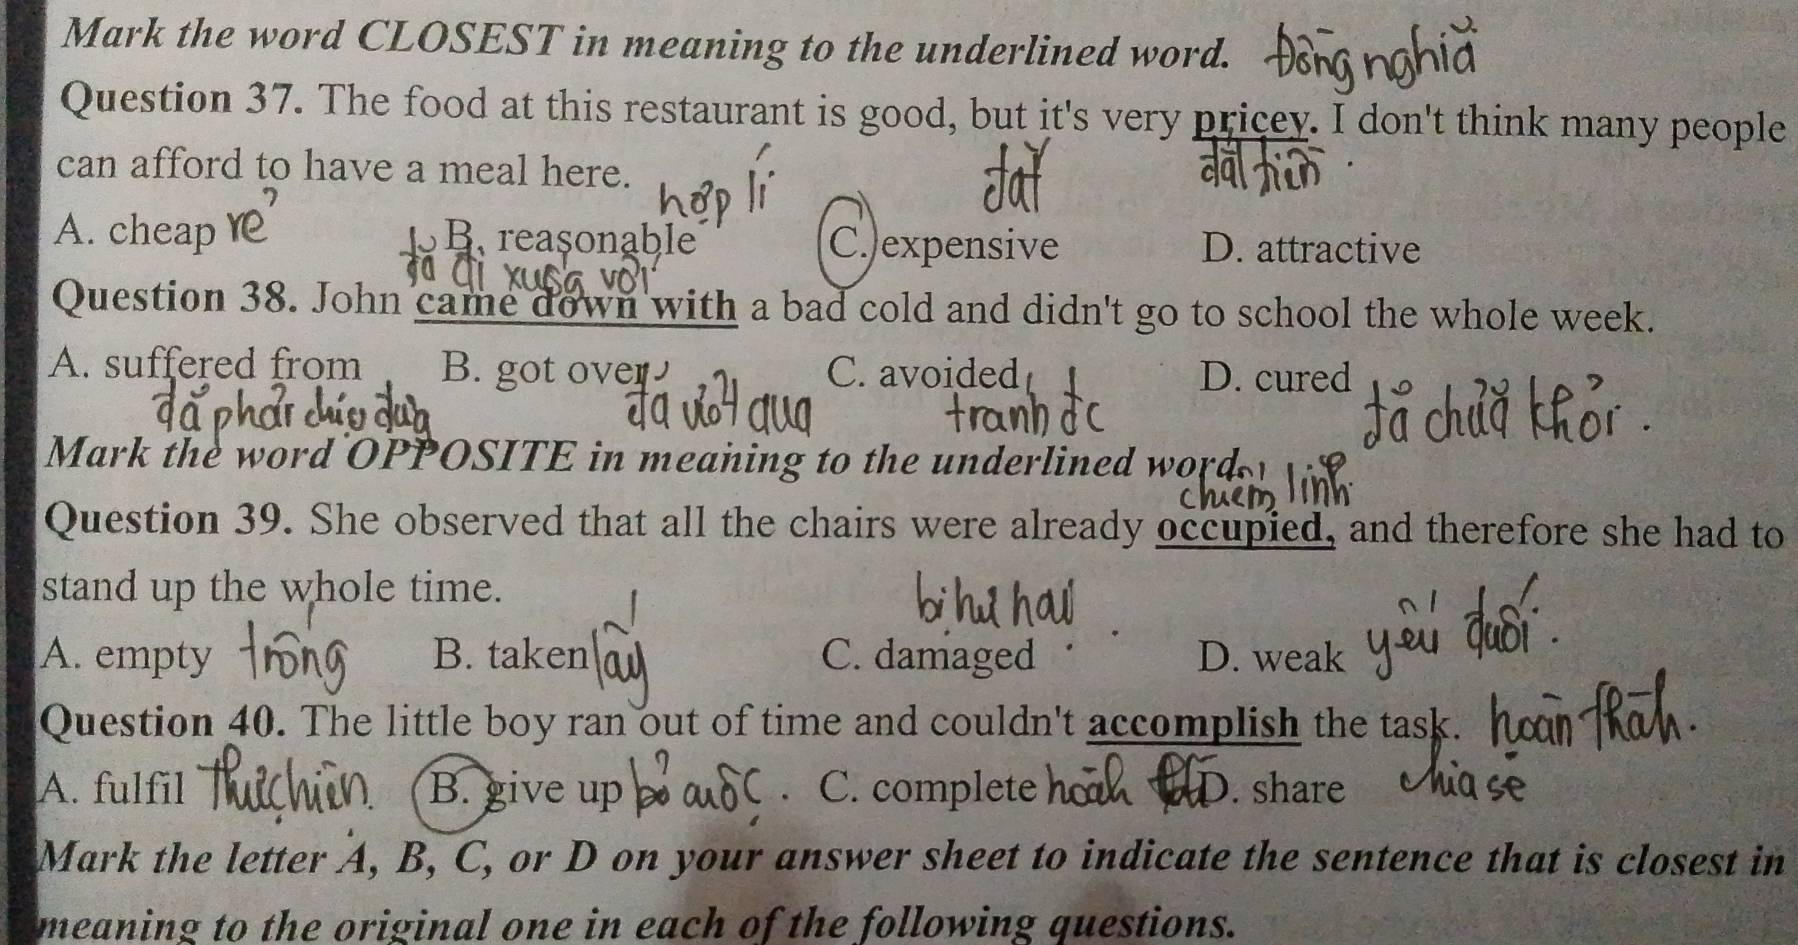 Mark the word CLOSEST in meaning to the underlined word. Đồng nghĩa
Question 37. The food at this restaurant is good, but it's very pricey. I don't think many people
đắt tiền
can afford to have a meal here.
hợp lí
đắt
A. cheap rẻ B. reasonable C. expensive D. attractive
đã đi xuống với
Question 38. John came down with a bad cold and didn't go to school the whole week.
A. suffered from B. got over C. avoided D. cured
đã phải chịu đựng đã vượt qua tránh đc đã chữa khỏi.
Mark the word OPPOSITE in meaning to the underlined word.
chiếm lĩnh
Question 39. She observed that all the chairs were already occupied, and therefore she had to
stand up the whole time.
bị hư hại
A. empty trống B. taken lấy C. damaged D. weak yếu đuối.
Question 40. The little boy ran out of time and couldn't accomplish the task. hoàn thành.
A. fulfil thực hiện. B. give up bỏ cuộc. C. complete hoành D. share chia sẻ
Mark the letter A, B, C, or D on your answer sheet to indicate the sentence that is closest in
meaning to the original one in each of the following questions.